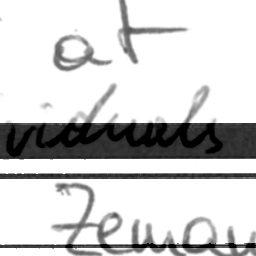 at
viduals
"Zeman